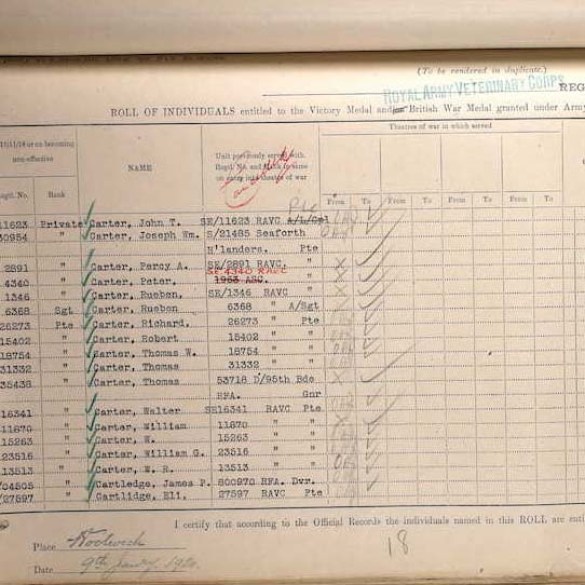 (To be rendered in duplicate.)
ROYAL ARMY VETERINARY CORPS
REG
ROLL OF INDIVIDUALS entitled to the Victory Medal and/or British War Medal granted under Army
11/11/18 or on becoming
non-effective
Regtl. No. Rank
NAME
Unit previously served with.
Regtl. No. and Rank in same
on entry into theatre of war
Theatres of war in which served
From To From To From To From To
11623 Private Carter, John T. SE/11623 RAVC A/L/Cpl Pte
30954 " Carter, Joseph Wm. S/21485 Seaforth
H'landers. Pte
2891 " Carter, Percy A. SE/2891 RAVC. "
4340 " Carter, Peter. SE 4340 RAVC 1953 ASC. "
1346 " Carter, Rueben. SE/1346 RAVC "
6368 Sgt Carter, Rueben 6368 " A/Sgt
26273 Pte Carter, Richard. 26273 " Pte
15402 " Carter, Robert 15402 " "
18754 " Carter, Thomas W. 18754 " "
31332 " Carter, Thomas 31332 " "
35438 " Carter, Thomas 53718 D/95th Bde
RFA. Gnr
16341 " Carter, Walter SE16341 RAVC Pte
11670 " Carter, William 11670 " "
15263 " Carter, W. 15263 " "
23516 " Carter, William G. 23516 " "
13513 " Carter, W. R. 13513 " "
04505 " Cartledge, James P. 800970 RFA. Dvr.
27597 " Cartlidge, Eli. 27597 RAVC Pte
I certify that according to the Official Records the individuals named in this ROLL are enti
Place Woolwich
Date 9th
18